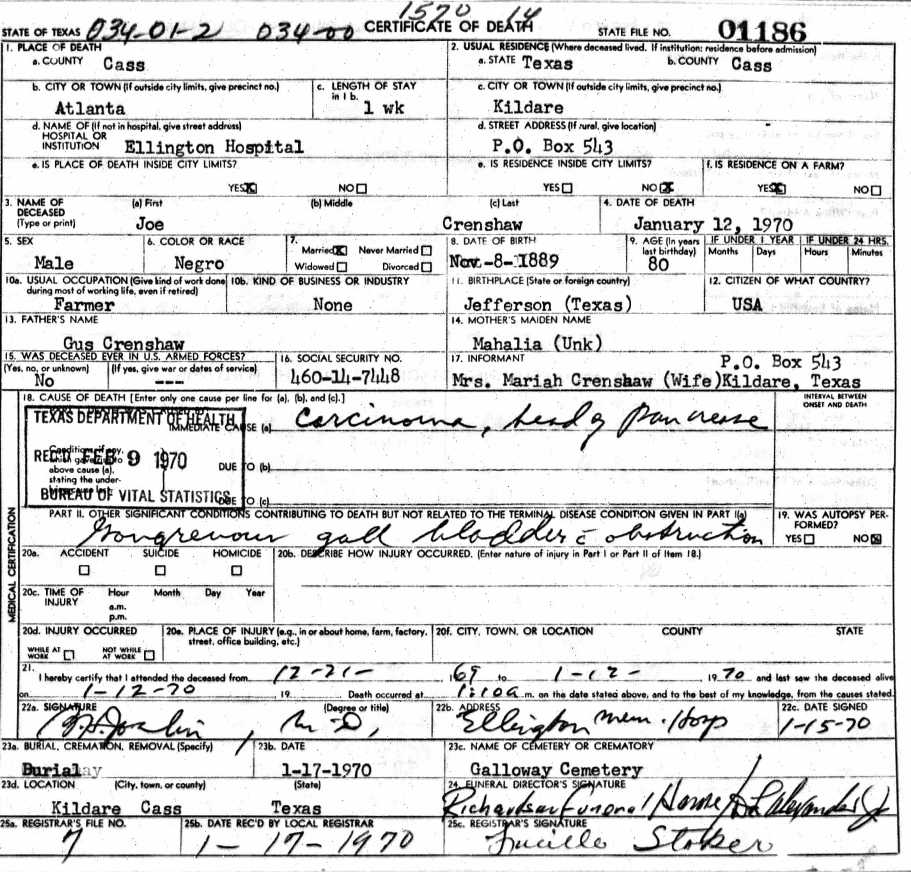 1570 14
STATE OF TEXAS 034-01-2 034-00 CERTIFICATE OF DEATH STATE FILE NO. 01186
1. PLACE OF DEATH
a. COUNTY Cass
2. USUAL RESIDENCE (Where deceased lived. If institution: residence before admission)
a. STATE Texas b. COUNTY Cass
b. CITY OR TOWN (If outside city limits, give precinct no.)
Atlanta
c. LENGTH OF STAY in 1 b.
1 wk
c. CITY OR TOWN (If outside city limits, give precinct no.)
Kildare
d. NAME OF (If not in hospital, give street address)
HOSPITAL OR
INSTITUTION Ellington Hospital
d. STREET ADDRESS (If rural, give location)
P.O. Box 543
e. IS PLACE OF DEATH INSIDE CITY LIMITS?
YES NO
e. IS RESIDENCE INSIDE CITY LIMITS?
YES NO
f. IS RESIDENCE ON A FARM?
YES NO
3. NAME OF DECEASED (Type or print)
(a) First (b) Middle (c) Last
Joe Crenshaw
4. DATE OF DEATH
January 12, 1970
5. SEX
Male
6. COLOR OR RACE
Negro
7.
Married Never Married
Widowed Divorced
8. DATE OF BIRTH
Nov.-8-1889
9. AGE (In years last birthday)
80
IF UNDER 1 YEAR IF UNDER 24 HRS.
Months Days Hours Minutes
10a. USUAL OCCUPATION (Give kind of work done during most of working life, even if retired)
Farmer
10b. KIND OF BUSINESS OR INDUSTRY
None
11. BIRTHPLACE (State or foreign country)
Jefferson (Texas)
12. CITIZEN OF WHAT COUNTRY?
USA
13. FATHER'S NAME
Gus Crenshaw
14. MOTHER'S MAIDEN NAME
Mahalia (Unk)
15. WAS DECEASED EVER IN U.S. ARMED FORCES?
(Yes, no, or unknown) (If yes, give war or dates of service)
No ---
16. SOCIAL SECURITY NO.
460-14-7448
17. INFORMANT P.O. Box 543
Mrs. Mariah Crenshaw (Wife)Kildare, Texas
18. CAUSE OF DEATH [Enter only one cause per line for (a), (b), and (c).]
INTERVAL BETWEEN ONSET AND DEATH
TEXAS DEPARTMENT OF HEALTH
IMMEDIATE CAUSE (a) Carcinoma, head of pancrease
Conditions if any,
REC'D FEB 9 1970
above cause (a),
stating the under-
DUE TO (b)
BUREAU OF VITAL STATISTICS
DUE TO (c)
PART II. OTHER SIGNIFICANT CONDITIONS CONTRIBUTING TO DEATH BUT NOT RELATED TO THE TERMINAL DISEASE CONDITION GIVEN IN PART I(a)
Gongrenour gall bladder c obstruction
19. WAS AUTOPSY PERFORMED?
YES NO
MEDICAL CERTIFICATION
20a. ACCIDENT SUICIDE HOMICIDE
20b. DESCRIBE HOW INJURY OCCURRED. (Enter nature of injury in Part I or Part II of Item 18.)
20c. TIME OF INJURY Hour Month Day Year
a.m.
p.m.
20d. INJURY OCCURRED
WHILE AT WORK NOT WHILE AT WORK
20e. PLACE OF INJURY (e.g., in or about home, farm, factory, street, office building, etc.)
20f. CITY, TOWN, OR LOCATION COUNTY STATE
21.
I hereby certify that I attended the deceased from 12-21- 1969 to 1-12- 1970 and last saw the deceased alive
on 1-12-70 19 . Death occurred at 1:10a m. on the date stated above, and to the best of my knowledge, from the causes stated.
22a. SIGNATURE (Degree or title)
M.D,
22b. ADDRESS
Ellington Mem. Hosp
22c. DATE SIGNED
1-15-70
23a. BURIAL, CREMATION, REMOVAL (Specify)
Burial
23b. DATE
1-17-1970
23c. NAME OF CEMETERY OR CREMATORY
Galloway Cemetery
23d. LOCATION (City, town, or county) (State)
Kildare Cass Texas
24. FUNERAL DIRECTOR'S SIGNATURE
Richardson Funeral Home
25a. REGISTRAR'S FILE NO.
7
25b. DATE REC'D BY LOCAL REGISTRAR
1-17-1970
25c. REGISTRAR'S SIGNATURE
Lucille Stoker